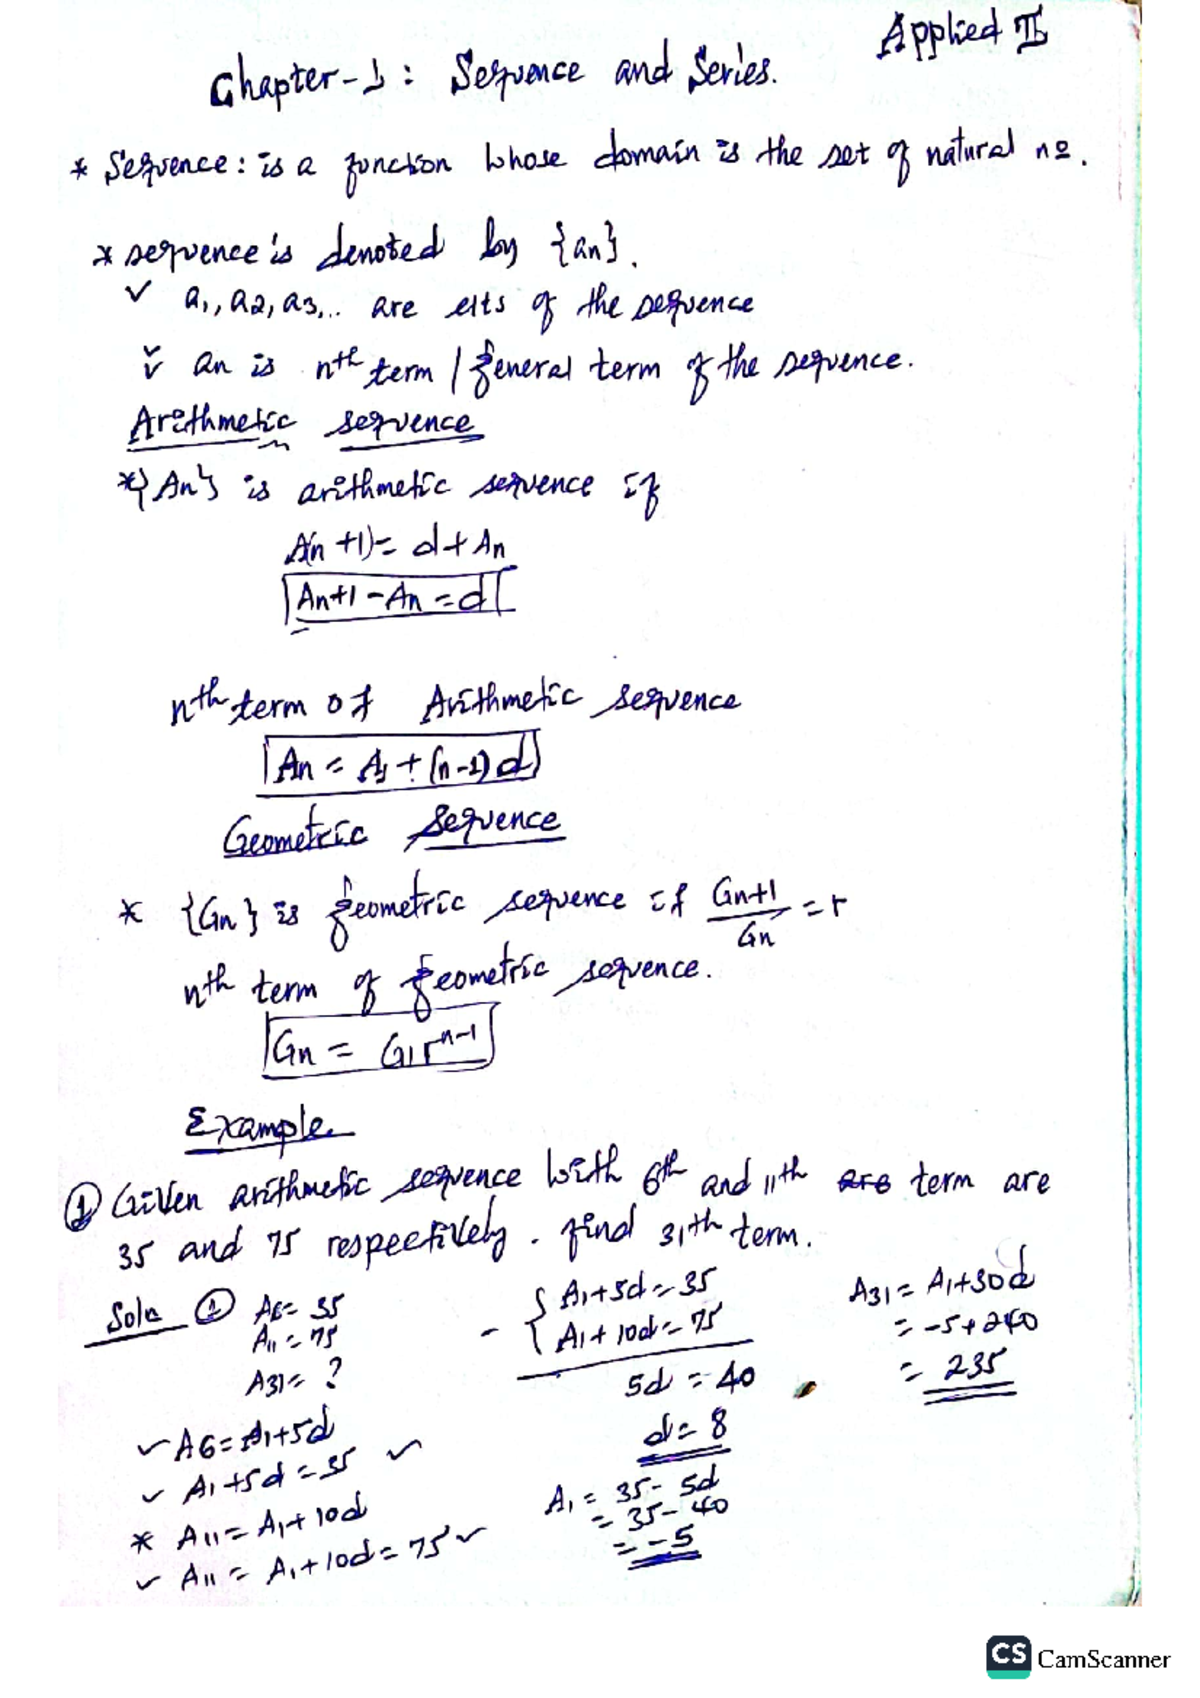 Applied II
Chapter-1: Sequence and Series.
* Sequence: is a function whose domain is the set of natural no.
* sequence is denoted by {an}.
✓ a1, a2, a3,... are elts of the sequence
✓ an is nth term / general term of the sequence.
Arithmetic sequence
* {An} is arithmetic sequence if
A(n+1) = d + An
An+1 - An = d
nth term of Arithmetic sequence
An = A1 + (n-1)d
Geometric sequence
* {Gn} is geometric sequence if Gn+1/Gn = r
nth term of geometric sequence.
Gn = G1 r^n-1
Example
① Given arithmetic sequence with 6th and 11th are term are
35 and 75 respectively. find 31th term.
Soln ① A6 = 35
A11 = 75
A31 = ?
✓ A6 = A1+5d
✓ A1 +5d = 35 ✓
* A11 = A1 + 10d
✓ A11 = A1 + 10d = 75 ✓
- { A1 + 5d = 35
A1 + 10d = 75
5d = 40
d = 8
A1 = 35 - 5d
= 35 - 40
= -5
A31 = A1+30d
= -5+240
= 235
CS CamScanner